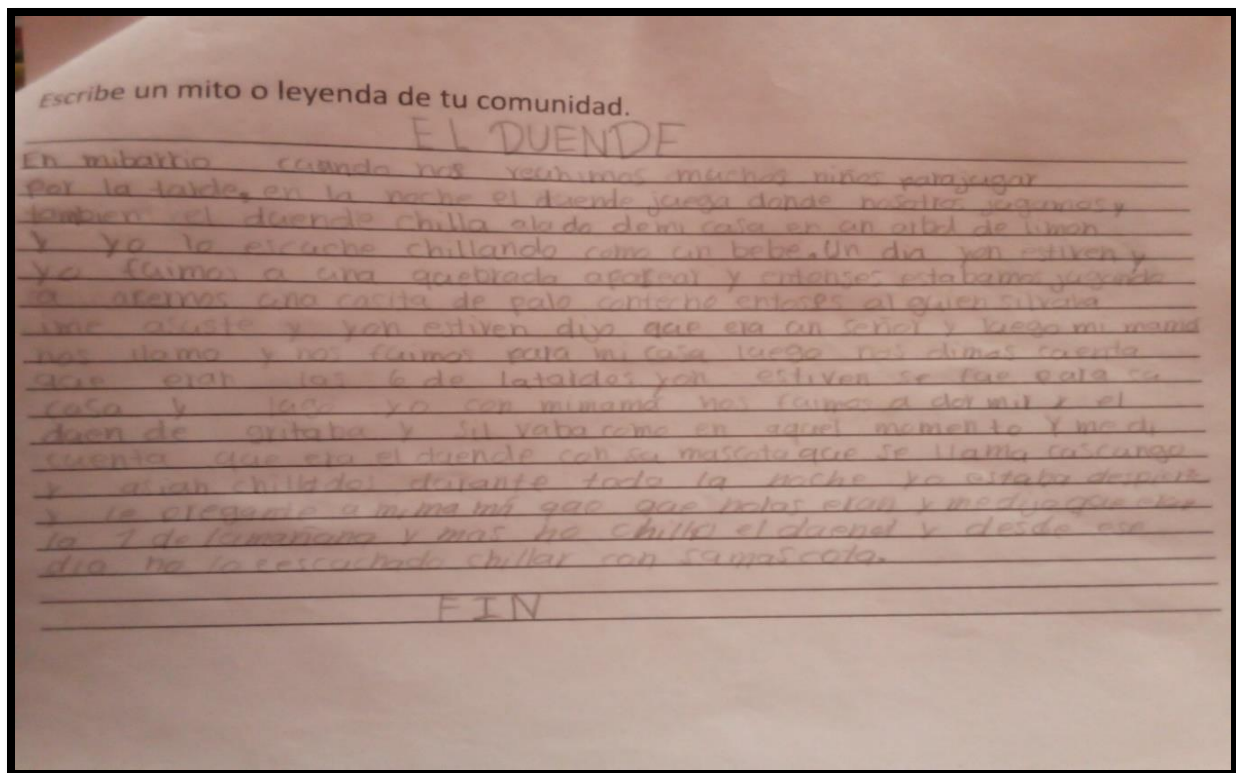 Escribe un mito o leyenda de tu comunidad.
EL DUENDE
En mibarrio cuando nos reunimos muchos niños parajugar
por la tarde, en la noche el duende juega donde nosotros jugamos y
tambien el duende chilla alado demi casa en un arbol de limon
y yo lo escuche chillando como un bebe. Un dia yon estiven y
yo fuimos a una quebrada apasear y entonses estabamos jugando
a acernos una casita de palo contecho entoses alguien silvaba
ime asuste y yon estiven dijo que era un señor y luego mi mamá
nos llamo y nos fuimos para mi casa luego nos dimos cuenta
que eran las 6 de latardes yon estiven se fue para su
casa y yo con mimamá nos fuimos a dormir y el
duen de gritaba y sil vaba como en aquel momento y me di
cuenta que era el duende con su mascota que se llama cascungo
y asian chillidos durante toda la noche yo estaba
y le pregunte a mimamá que que horas eran y medijo que eran
la 1 de lamañana y mas no chillo el y desde ese
dia no lo eescuchado chillar con sumascota.
FIN